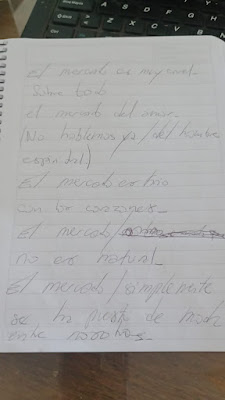 El mercado es muy cruel.
Sobre todo
el mercado del amor.
(No hablemos ya / del hombre
espiritual.)
El mercado es frío
con los corazones.
El mercado /
no es natural.
El mercado / simplemente
se ha puesto de moda
entre nosotros.